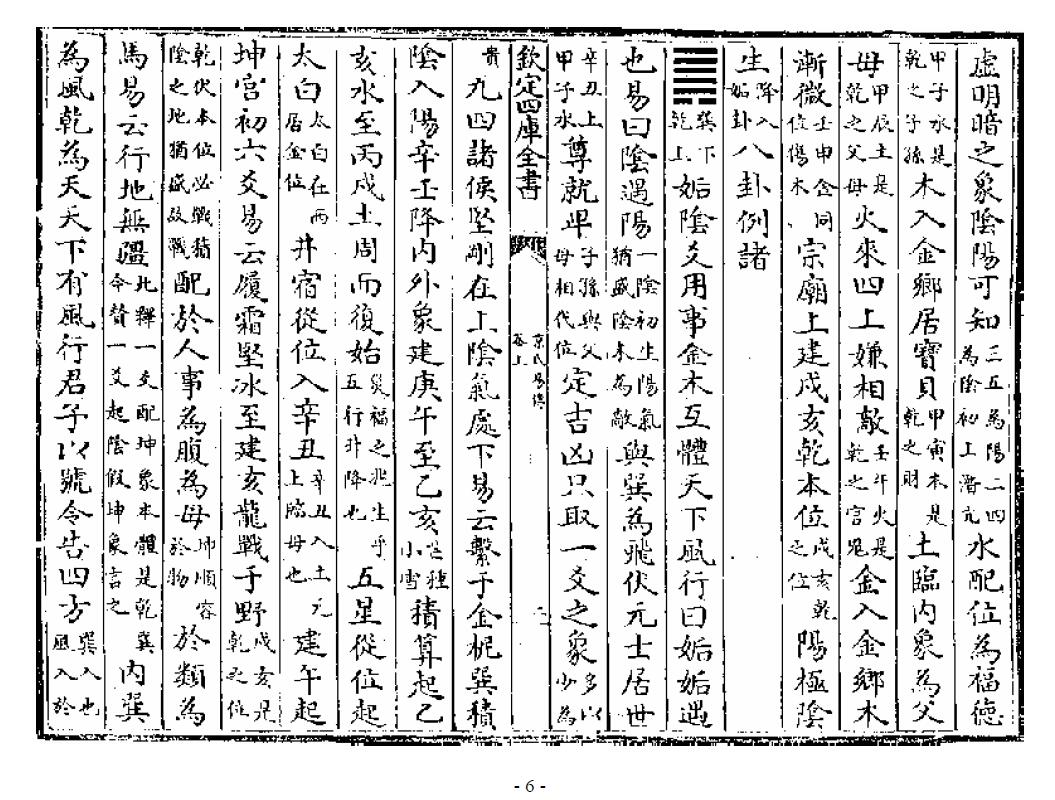 虛明暗之象陰陽可知三五為陽二四為陰初上潛亢水配位為福德
甲子水是乾之子孫木入金鄉居寶貝甲寅木是乾之財土臨内象為父
母甲辰土是乾之父母火來四上嫌相敵壬午火是乾之官鬼金入金鄉木
漸微壬申金同位傷木宗廟上建戌亥乾本位戌亥乾之位陽極陰
生降入姤卦八卦例諸
䷫巽下乾上姤陰爻用事金木互體天下風行曰姤姤遇
也易曰陰遇陽一陰初生陽氣猶盛陰未為敵與巽為飛伏元士居世
辛丑土甲子水尊就卑子孫與父母相代位定吉凶只取一爻之象多以少為
欽定四庫全書 京氏易傳卷上 二
貴九四諸侯堅剛在上陰氣處下易云繫于金柅巽積
陰入陽辛壬降内外象建庚午至乙亥芒種小雪積算起乙
亥水至丙戌土周而復始災福之兆生乎五行升降也五星從位起
太白太白在西居金位井宿從位入辛丑辛丑入土元上臨母也建午起
坤宮初六爻易云履霜堅冰至建亥龍戰于野戌亥是乾之位
乾伏本位必戰猶陰之地猶盛故戰配於人事為腹為母坤順容於物於類為
馬易云行地無疆此釋一爻配坤象本體是乾巽今贊一爻起陰假坤象言之内巽
為風乾為天天下有風行君子以號令告四方巽入也風入於
- 6 -